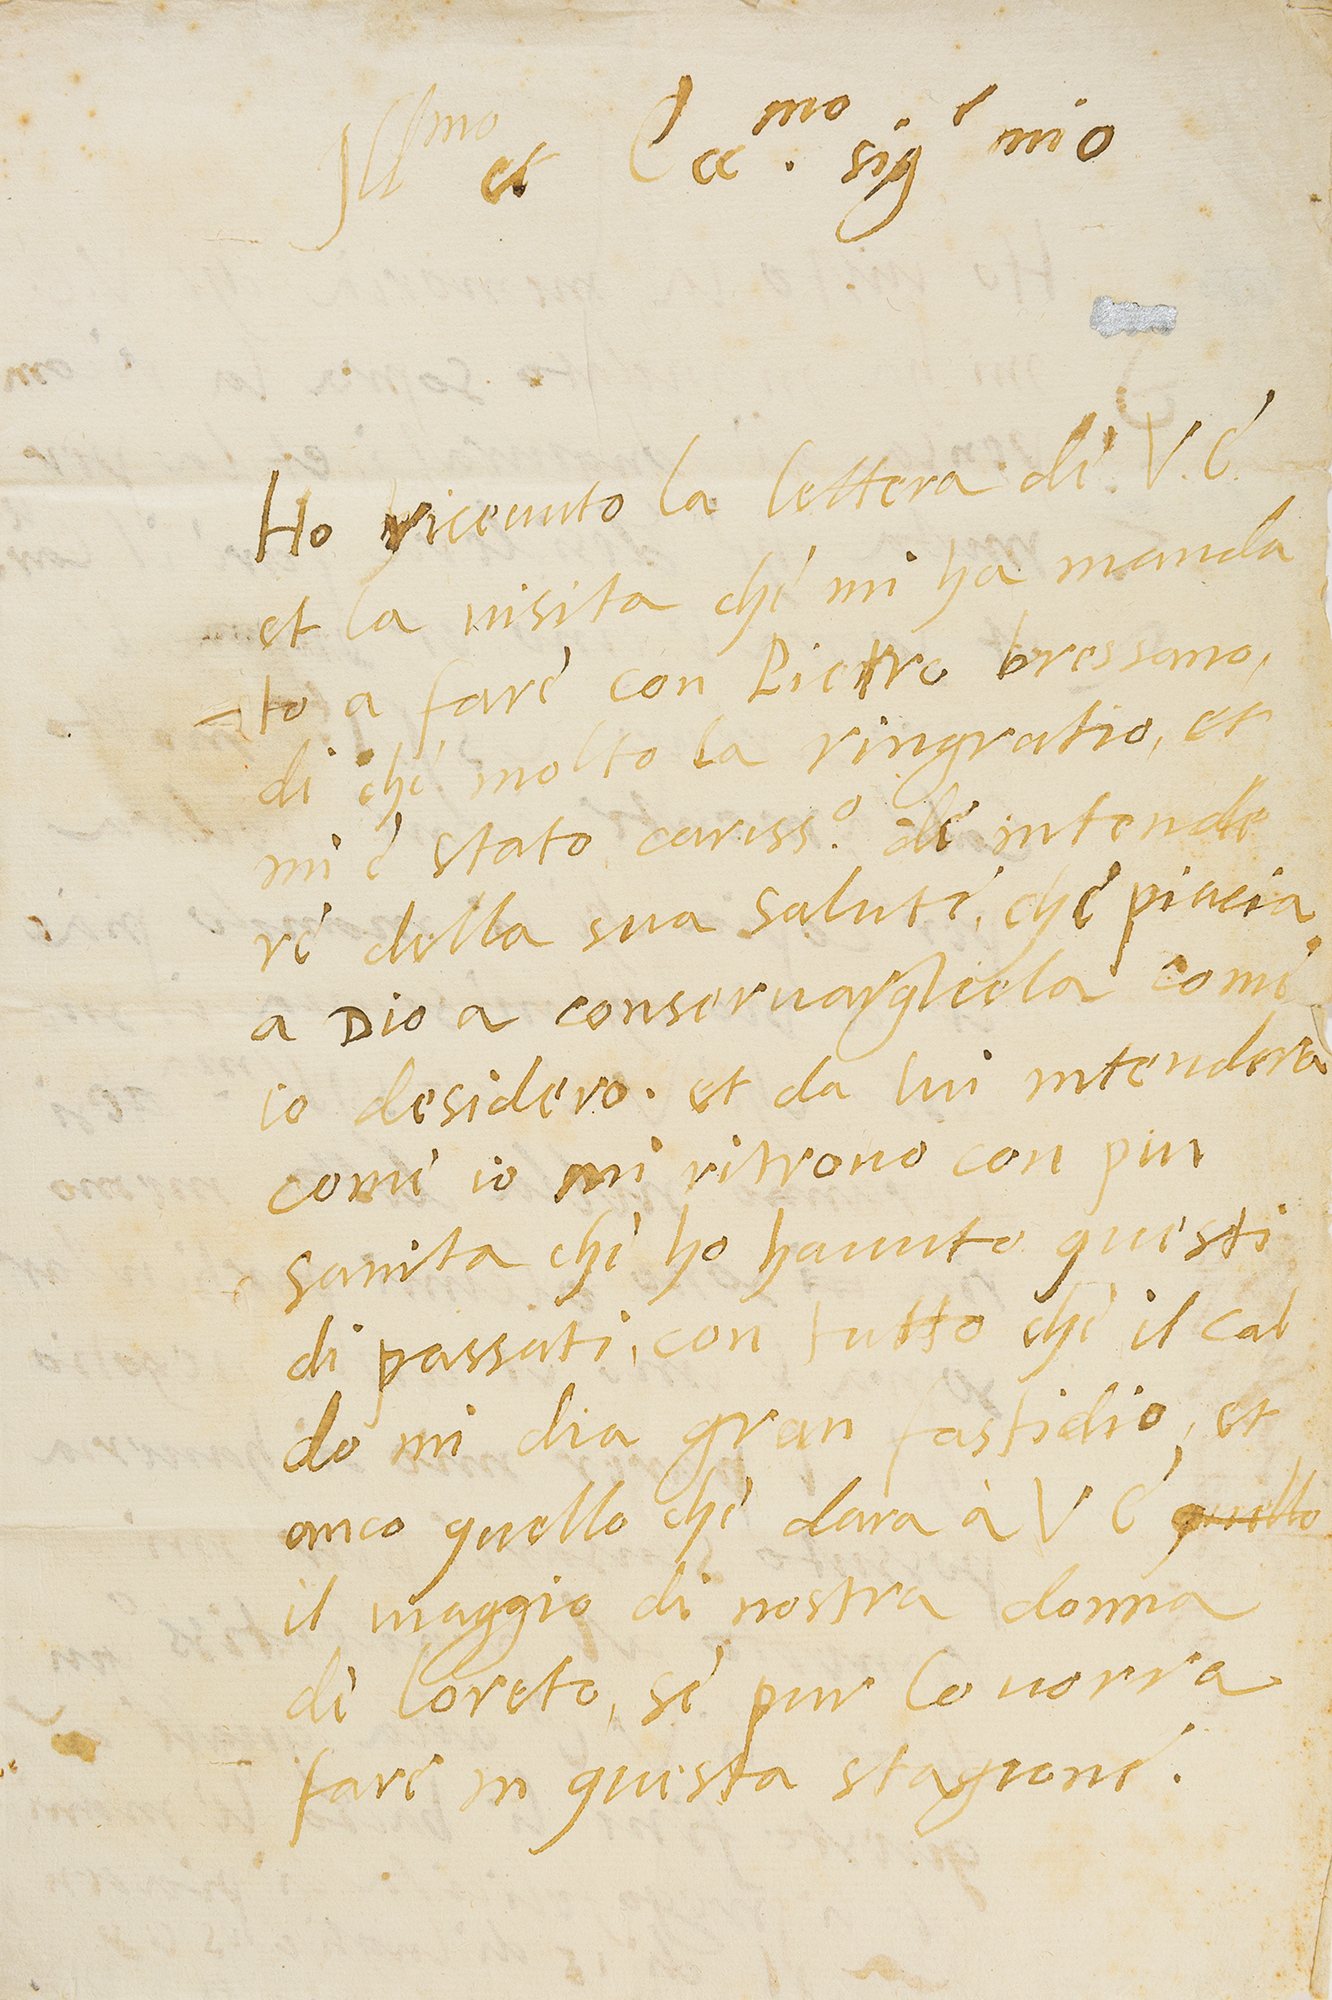 Ill^mo et Ecc^mo. sig^r mio
Ho riceuuto la lettera di V. E.
et la uisita che mi ha manda
to a fare con Pietro bressano,
di che molto la ringratio, et
mi è stato cariss.° de intende
re della sua salute, che piacia
a Dio a conseruargliela come
io desidero. et da lui intendera
come io mi ritrouo con piu
sanita che ho hauuto questi
di passati, con tutto che il cal
do mi dia gran fastidio, et
anco quello che dara à V E quello
il maggio di nostra donna
di loreto, se pur lo uorra
fare in questa stagione.